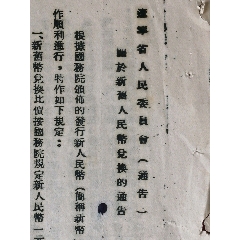 遼寧省人民委員會（通告）
關於新舊人民幣兌換的通告
根據國務院頒佈的發行新人民幣（簡稱新幣
作順利進行，特作如下規定：
一、新舊幣兌換比位按國務院規定新人民幣一